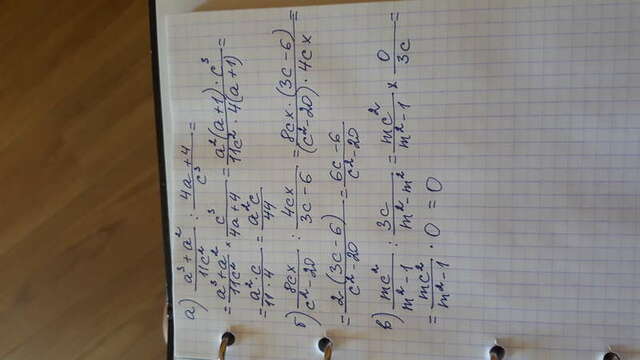 а) (a³ + a²)/(11c²) : (4a + 4)/(c³) =
= (a³ + a²)/(11c²) × (c³)/(4a + 4) = (a²(a + 1) · c³)/(11c² · 4(a + 1)) =
= (a² · c)/(11 · 4) = (a²c)/(44)
б) (8cx)/(c² - 20) : (4cx)/(3c - 6) = (8cx · (3c - 6))/((c² - 20) · 4cx) =
= (2 (3c - 6))/(c² - 20) = (6c - 6)/(c² - 20)
в) (mc²)/(m² - 1) : (3c)/(m² - m²) = (mc²)/(m² - 1) × (0)/(3c) =
= (mc²)/(m² - 1) · 0 = 0